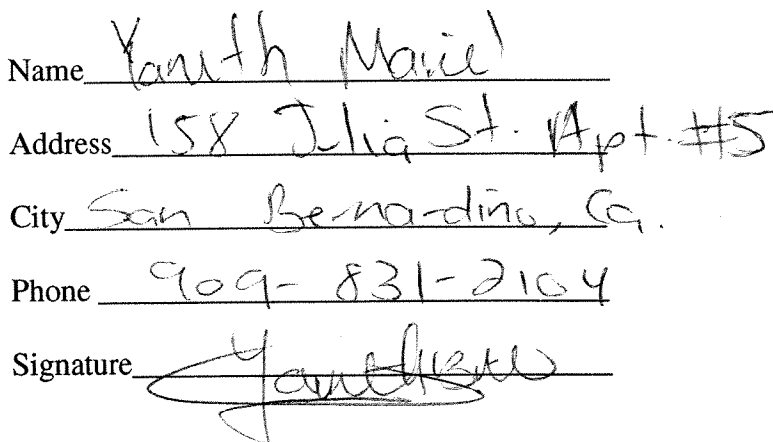 Name Yanuth Mariel
Address 158 Julia St. Apt. #5
City San Bernardino, Ca.
Phone 909-831-2104
Signature